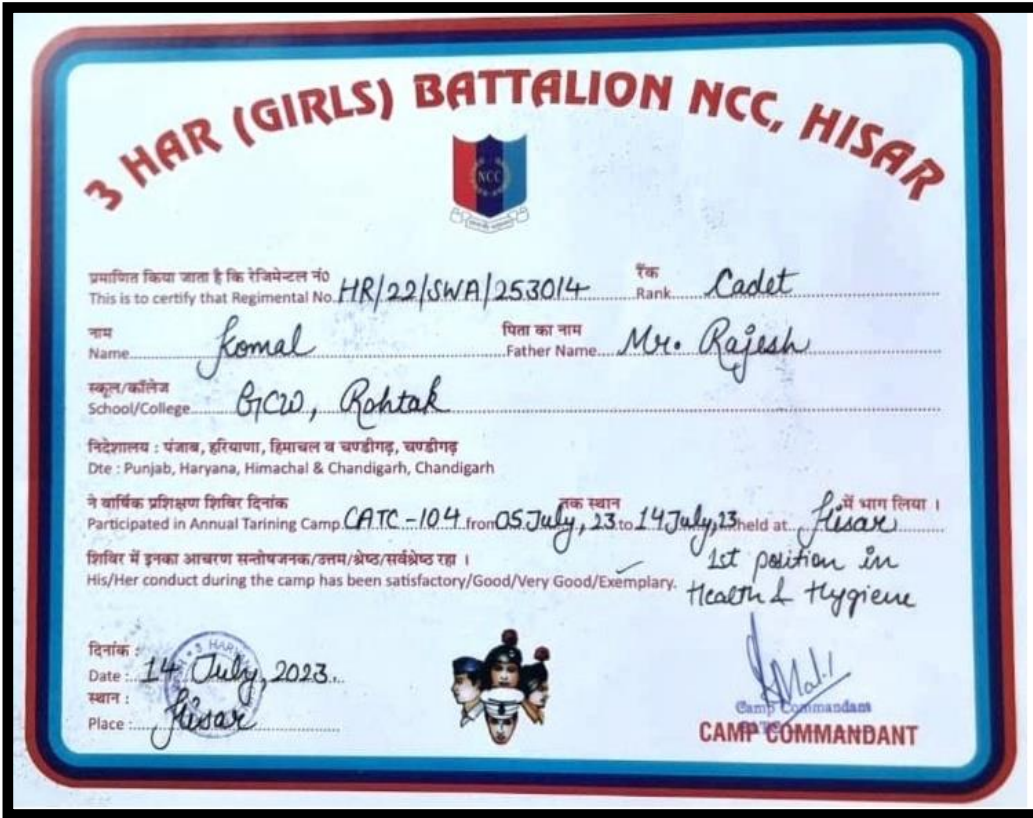 3 HAR (GIRLS) BATTALION NCC, HISAR
NCC
प्रमाणित किया जाता है कि रेजिमेन्टल नं० रैंक
This is to certify that Regimental No. HR/22/SWA/253014 Rank Cadet
नाम पिता का नाम
Name Komal Father Name Mr. Rajesh
स्कूल/कॉलेज
School/College GCW, Rohtak
निदेशालय : पंजाब, हरियाणा, हिमाचल व चण्डीगढ़, चण्डीगढ़
Dte : Punjab, Haryana, Himachal & Chandigarh, Chandigarh
ने वार्षिक प्रशिक्षण शिविर दिनांक तक स्थान में भाग लिया ।
Participated in Annual Tarining Camp CATC-104 from 05 July, 23 to 14 July, 23 held at Hisar
शिविर में इनका आचरण सन्तोषजनक/उत्तम/श्रेष्ठ/सर्वश्रेष्ठ रहा ।
His/Her conduct during the camp has been satisfactory/Good/Very Good/Exemplary.
1st position in
Health & Hygiene
दिनांक :
Date : 14 July, 2023
स्थान :
Place : Hisar
Camp Commandant
CAMP COMMANDANT